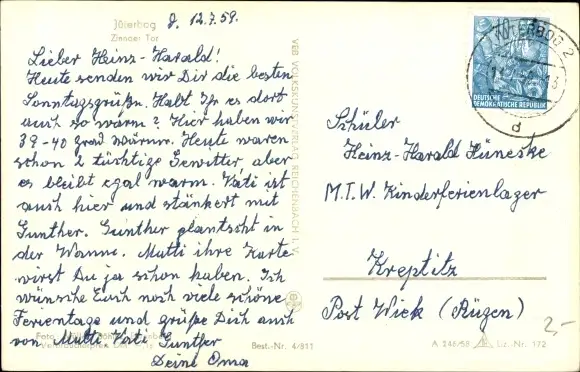 Jüterbog
Zinnaer Tor
J. 12.7.59.
Lieber Heinz-Harald!
Heute senden wir Dir die besten
Sonntagsgrüße. Habt Ihr es dort
auch so warm? Hier haben wir
39-40 grad Wärme. Heute waren
schon 2 tüchtige Gewitter aber
es bleibt egal warm. Vati ist
auch hier und stänkert mit
Gunther. Gunther plantscht in
der Wanne. Mutti ihre Karte
wirst Du ja schon haben. Ich
wünsche Euch noch viele schöne
Ferientage und grüße Dich auch
von Mutti Vati Gunther
Deine Oma
Best.-Nr. 4/811
VEB VOLKSKUNSTVERLAG REICHENBACH I. V.
JÜTERBOG 2
d
DEUTSCHE
DEMOKRATISCHE REPUBLIK
Schüler
Heinz-Harald Hüneske
M.T.W. Kinderferienlager
Kreptitz
Post Wiek (Rügen)
2,-
A 246/58 Liz.-Nr. 172